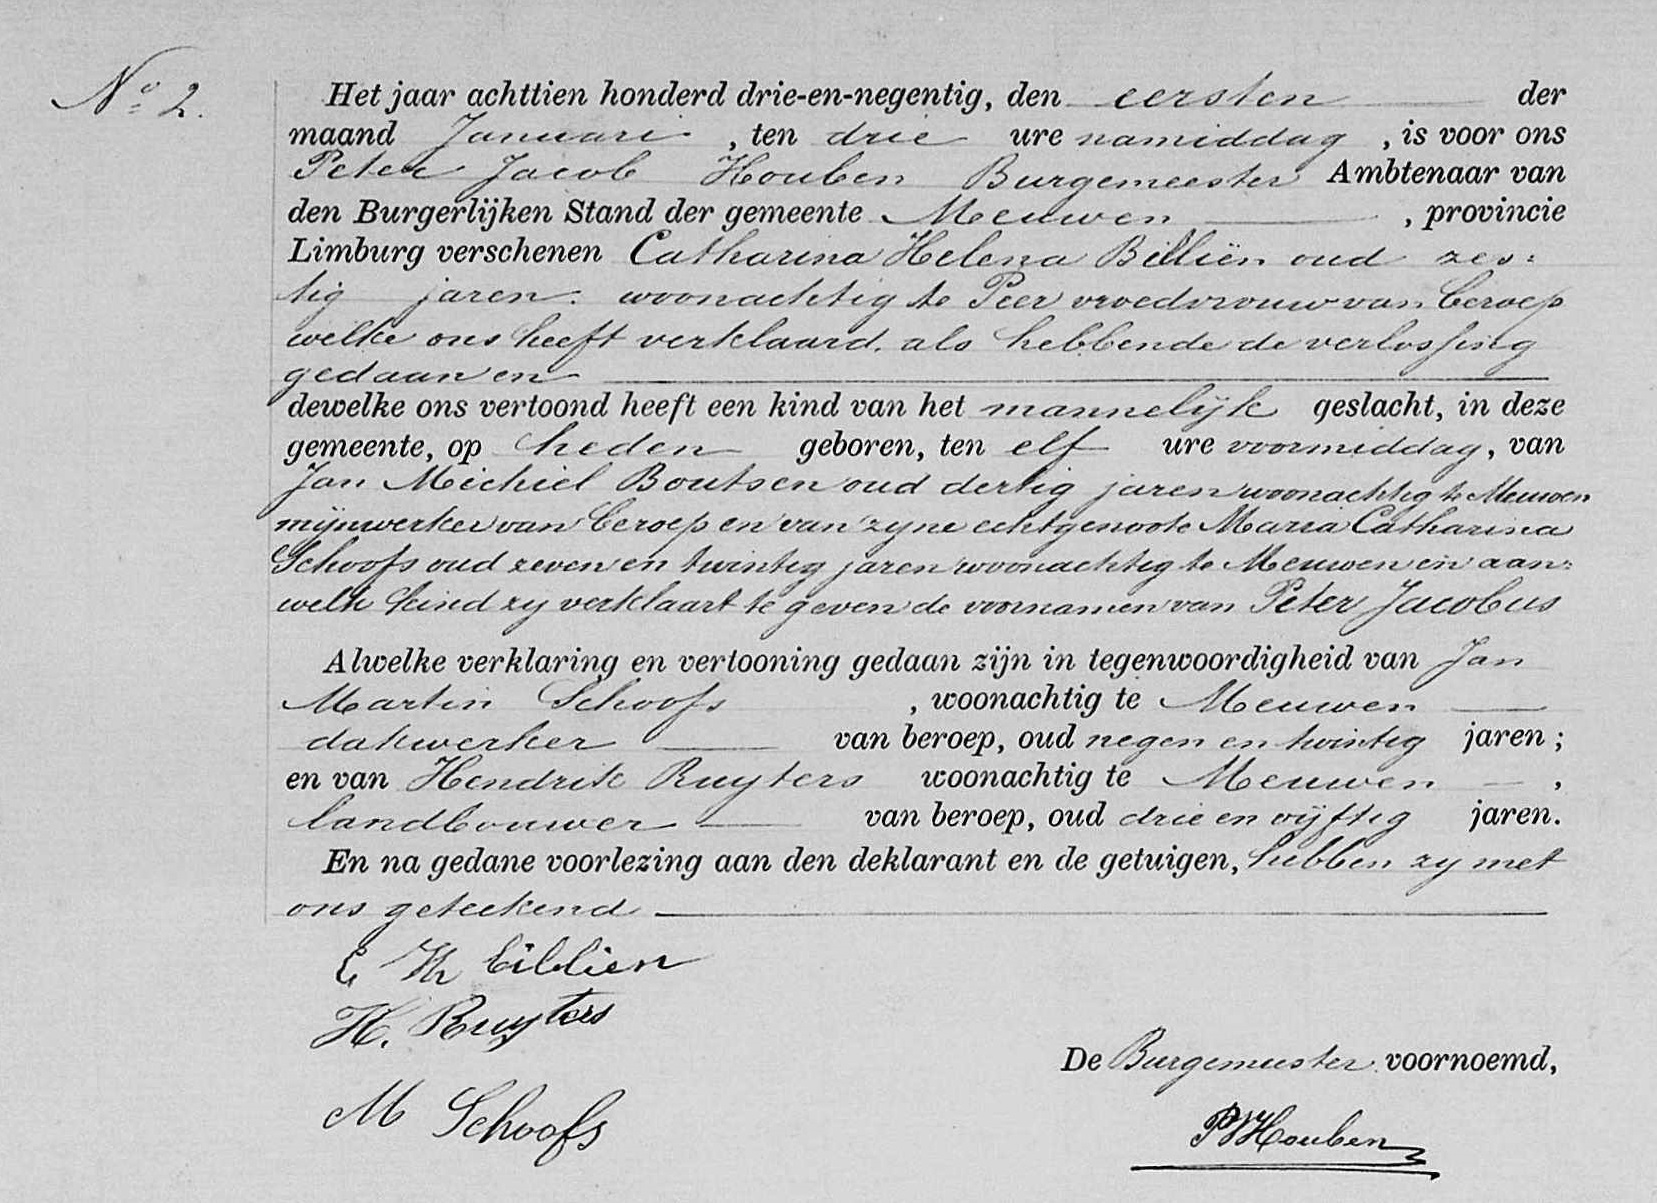 No 2.
Het jaar achttien honderd drie-en-negentig, den eersten der
maand Januari, ten drie ure namiddag, is voor ons
Peter Jacob Houben Burgemeester Ambtenaar van
den Burgerlijken Stand der gemeente Meeuwen, provincie
Limburg verschenen Catharina Helena Billiën oud zes=
tig jaren. woonachtig te Peer vroedvrouw van beroep
welke ons heeft verklaard, als hebbende de verlossing
gedaan en
dewelke ons vertoond heeft een kind van het mannelijk geslacht, in deze
gemeente, op heden geboren, ten elf ure voormiddag, van
Jan Michiel Boutsen oud dertig jaren woonachtig te Meuwen
mijnwerker van beroep en van zyne echtgenoote Maria Catharina
Schoofs oud zeven en twintig jaren woonachtig te Meuwen en aan=
welk kind zy verklaart te geven de voornamen van Peter Jacobus
Alwelke verklaring en vertooning gedaan zijn in tegenwoordigheid van Jan
Martin Schoofs, woonachtig te Meuwen
dakwerker van beroep, oud negen en twintig jaren;
en van Hendrik Ruyters woonachtig te Meuwen,
landbouwer van beroep, oud drie en vijftig jaren.
En na gedane voorlezing aan den deklarant en de getuigen, hebben zy met
ons geteekend
C H billien
H. Ruyters
De Burgemeester voornoemd,
M Schoofs
PJHouben